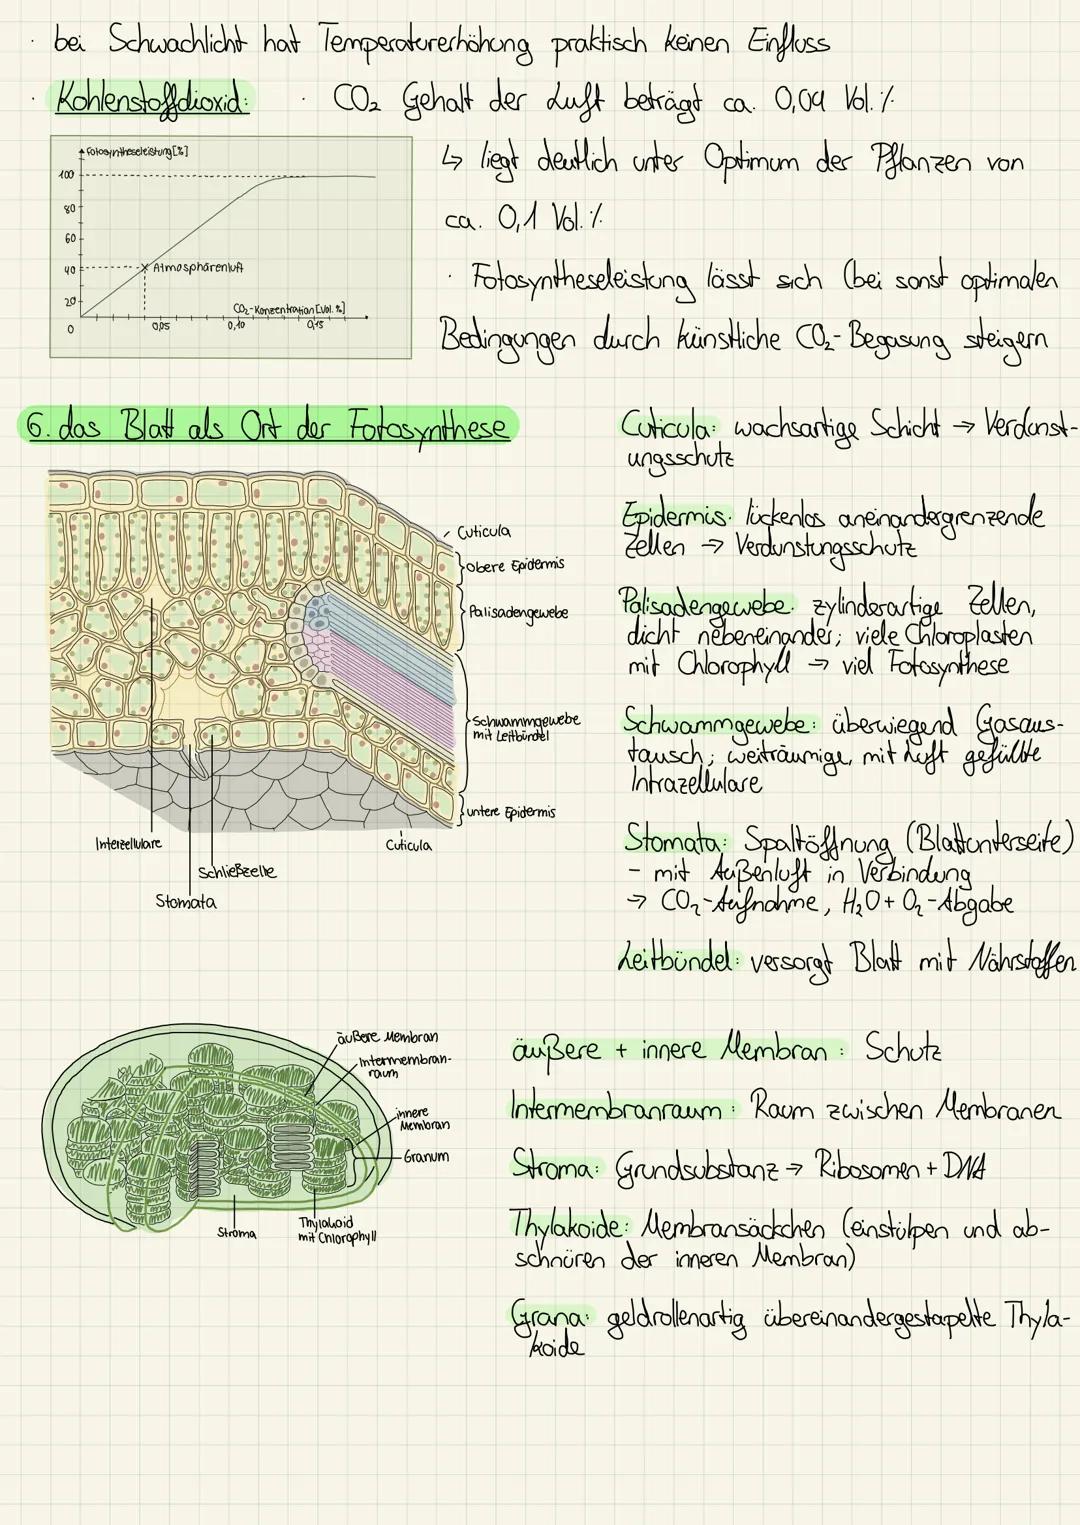 · bei Schwachlicht hat Temperaturerhöhung praktisch keinen Einfluss
· Kohlenstoffdioxid: · CO₂ Gehalt der Luft beträgt ca. 0,04 Vol.%
↳ liegt deutlich unter Optimum der Pflanzen von
ca. 0,1 Vol.%
· Fotosyntheseleistung lässt sich (bei sonst optimalen
Bedingungen durch künstliche CO₂-Begasung steigern
Fotosyntheseleistung [%]
100
80
60
40
Atmosphärenluft
20
CO₂-Konzentration [Vol. %]
0
0,05
0,10
0,15
6. das Blatt als Ort der Fotosynthese
Cuticula
obere Epidermis
Palisadengewebe
Schwammgewebe
mit Leitbündel
untere Epidermis
Cuticula
Interzellulare
Schließzelle
Stomata
Cuticula: wachsartige Schicht → Verdunst-
ungsschutz
Epidermis: lückenlos aneinandergrenzende
Zellen → Verdunstungsschutz
Palisadengewebe: zylinderartige Zellen,
dicht nebeneinander; viele Chloroplasten
mit Chlorophyll → viel Fotosynthese
Schwammgewebe: überwiegend Gasaus-
tausch; weiträumige, mit Luft gefüllte
Intrazellulare
Stomata: Spaltöffnung (Blattunterseite)
- mit Außenluft in Verbindung
→ CO₂-Aufnahme, H₂O + O₂-Abgabe
Leitbündel: versorgt Blatt mit Nährstoffen
äußere Membran
Intermembran-
raum
innere
Membran
Granum
Stroma
Thylakoid
mit Chlorophyll
äußere + innere Membran: Schutz
Intermembranraum: Raum zwischen Membranen
Stroma: Grundsubstanz → Ribosomen + DNA
Thylakoide: Membransäckchen (einstülpen und ab-
schnüren der inneren Membran)
Grana: geldrollenartig übereinandergestapelte Thyla-
koide